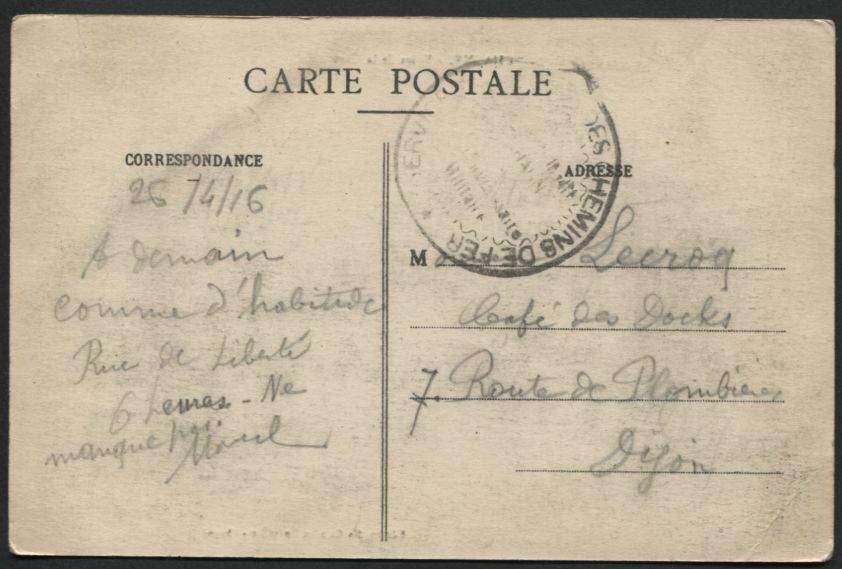 CARTE POSTALE
CORRESPONDANCE
26/4/16
A demain
comme d'habitude
Rue de Liberté
6 heures - Ne
manque pas.
Marcel
DES CHEMINS DE FER
ADRESSE
M Lecroq
Café des Docks
7. Route de Plombières
Dijon